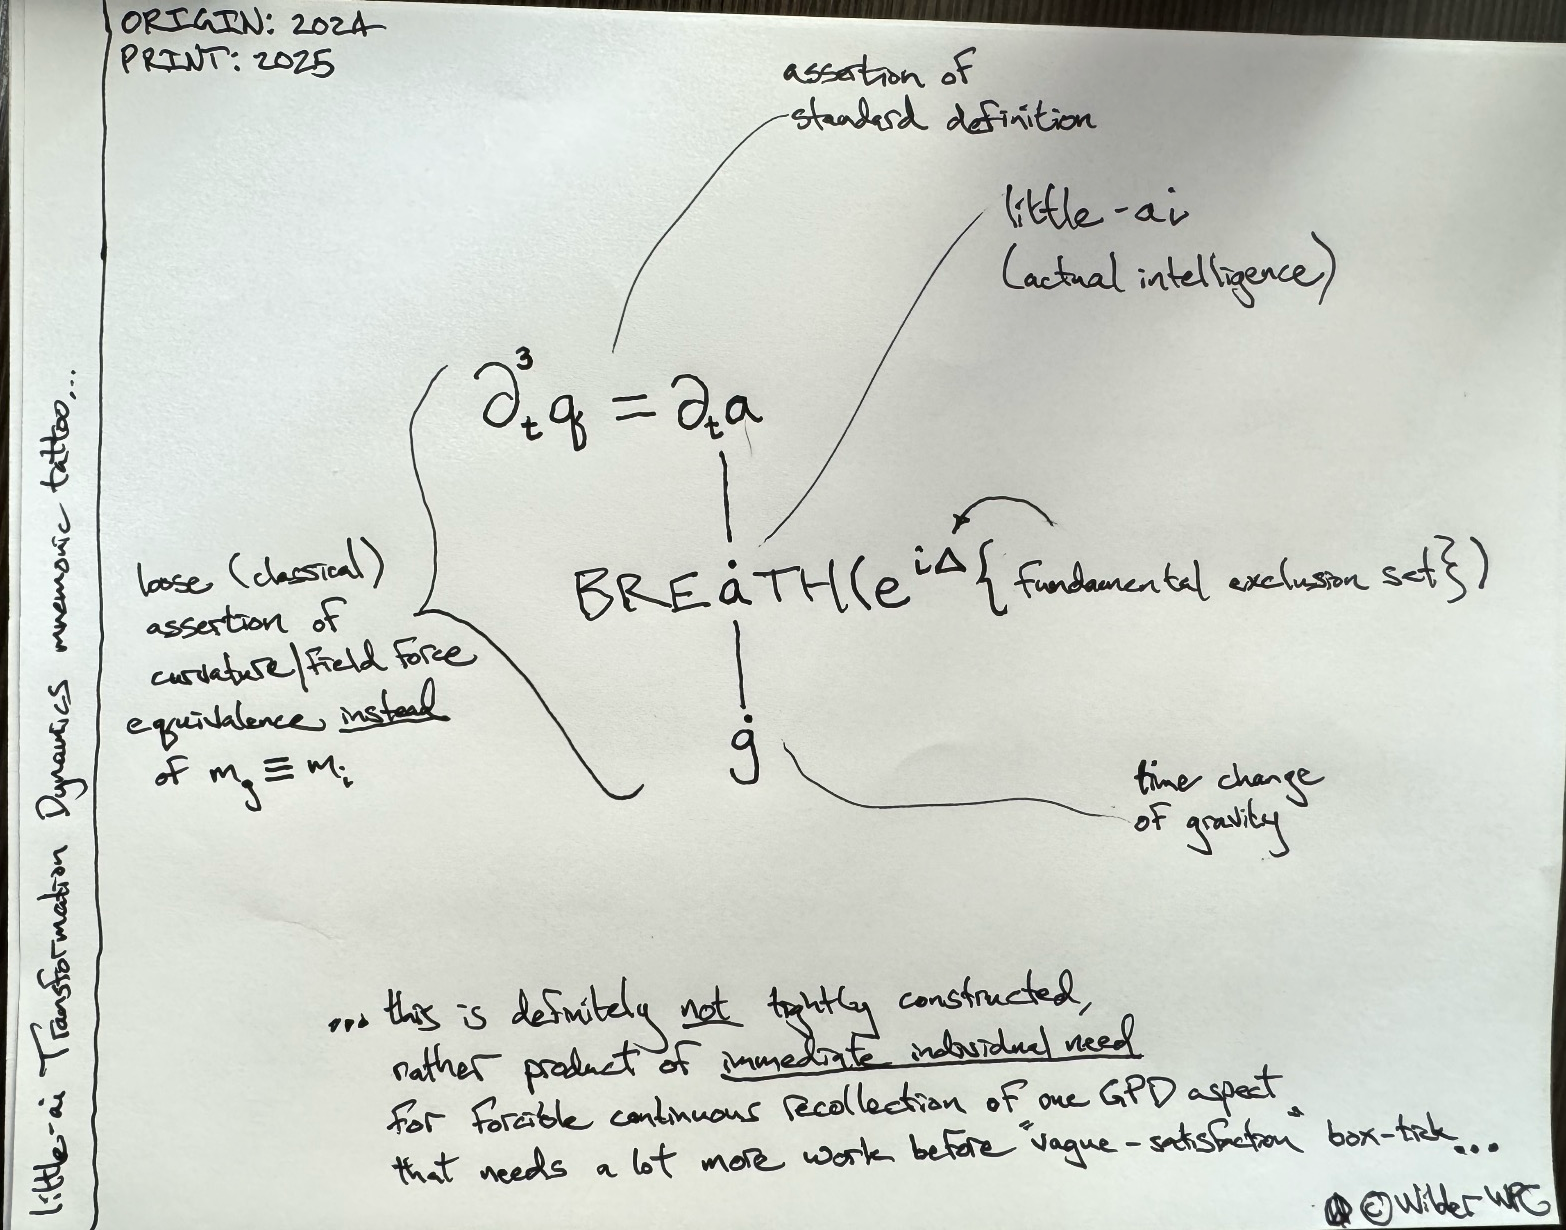 ORIGIN: 2024
PRINT: 2025
assertion of
standard definition
little-ai
(actual intelligence)
∂ₜ³q = ∂ₜa
BREȧTH(e^{iΔ}{fundamental exclusion set})
ġ
loose (classical)
assertion of
curvature/field force
equivalence instead
of m_g ≡ m_i
time change
of gravity
...this is definitely not tightly constructed,
rather product of immediate individual need
for forcible continuous recollection of one GPD aspect
that needs a lot more work before "vague-satisfaction" box-tick...
© Wilder WPG
little-ai Transformation Dynamics mnemonic tattoo...